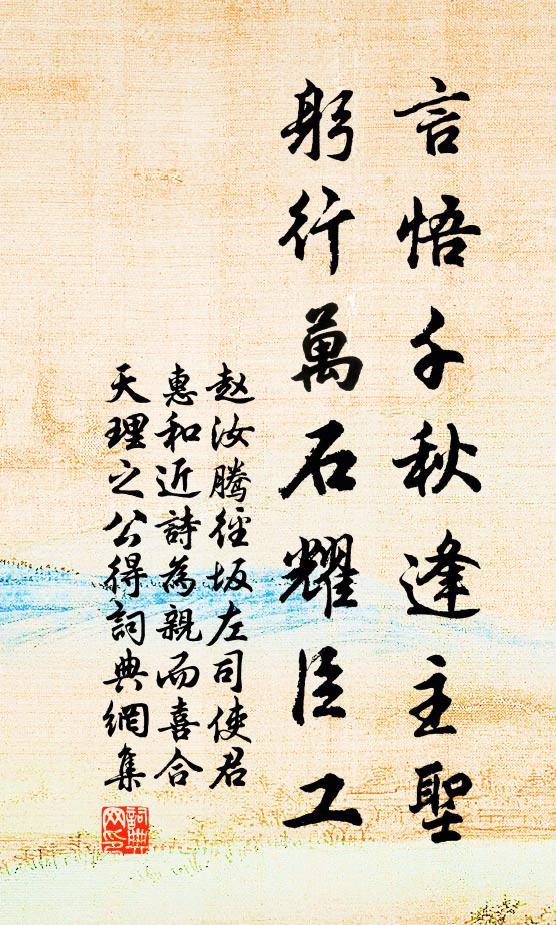 言悟千秋逢主聖
躬行萬石耀臣工
赵汝腾徑坂左司使君
惠和近詩為親而喜合
天理之公得詞典網集
詞典
网印